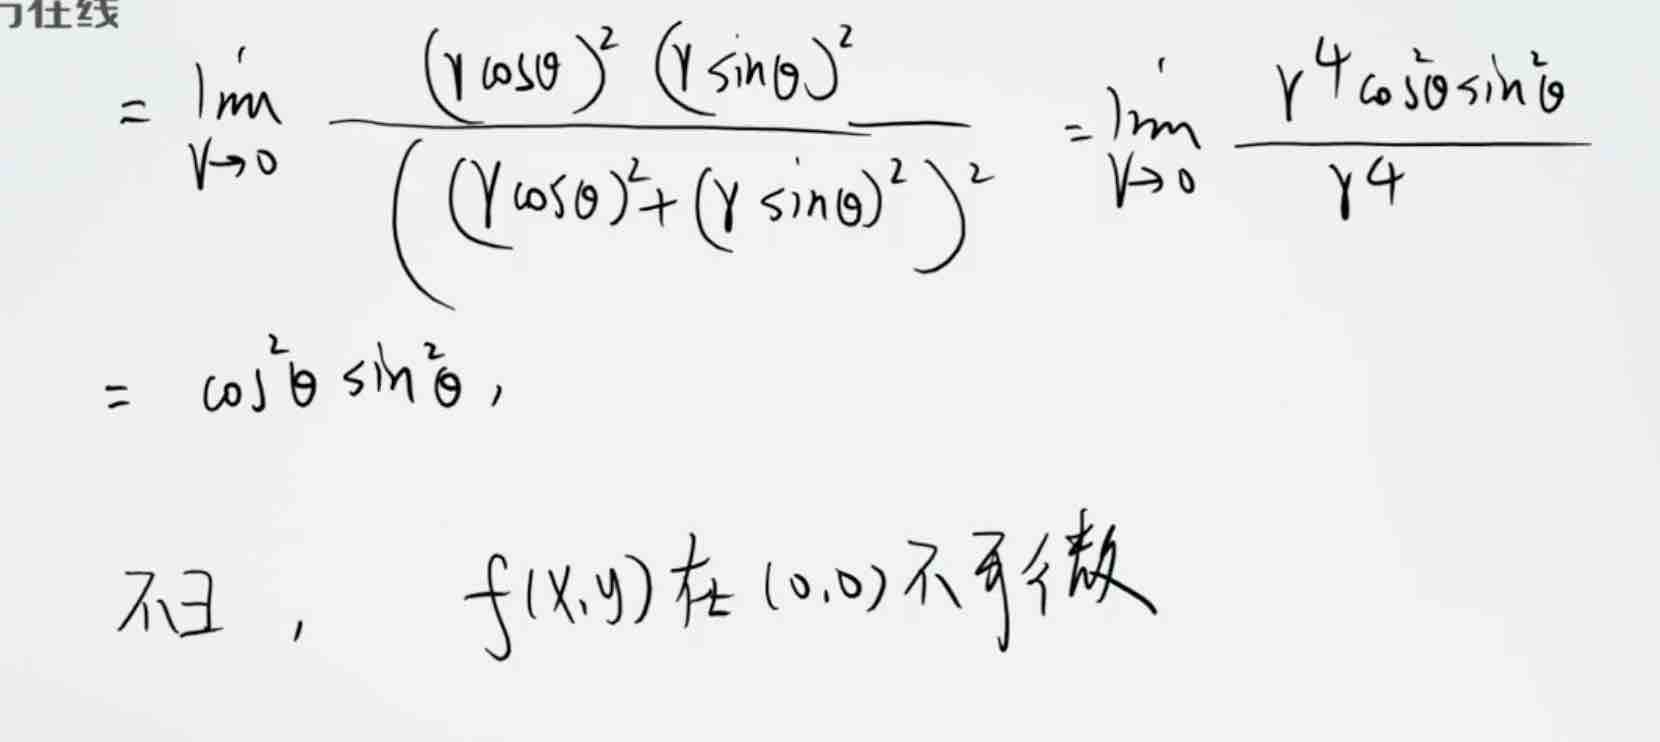 方在线
= lim r→0 (r cosθ)² (r sinθ)² / ((r cosθ)² + (r sinθ)²)² = lim r→0 r⁴ cos²θ sin²θ / r⁴
= cos²θ sin²θ ,
不∃ , f(x,y) 在 (0,0) 不可微